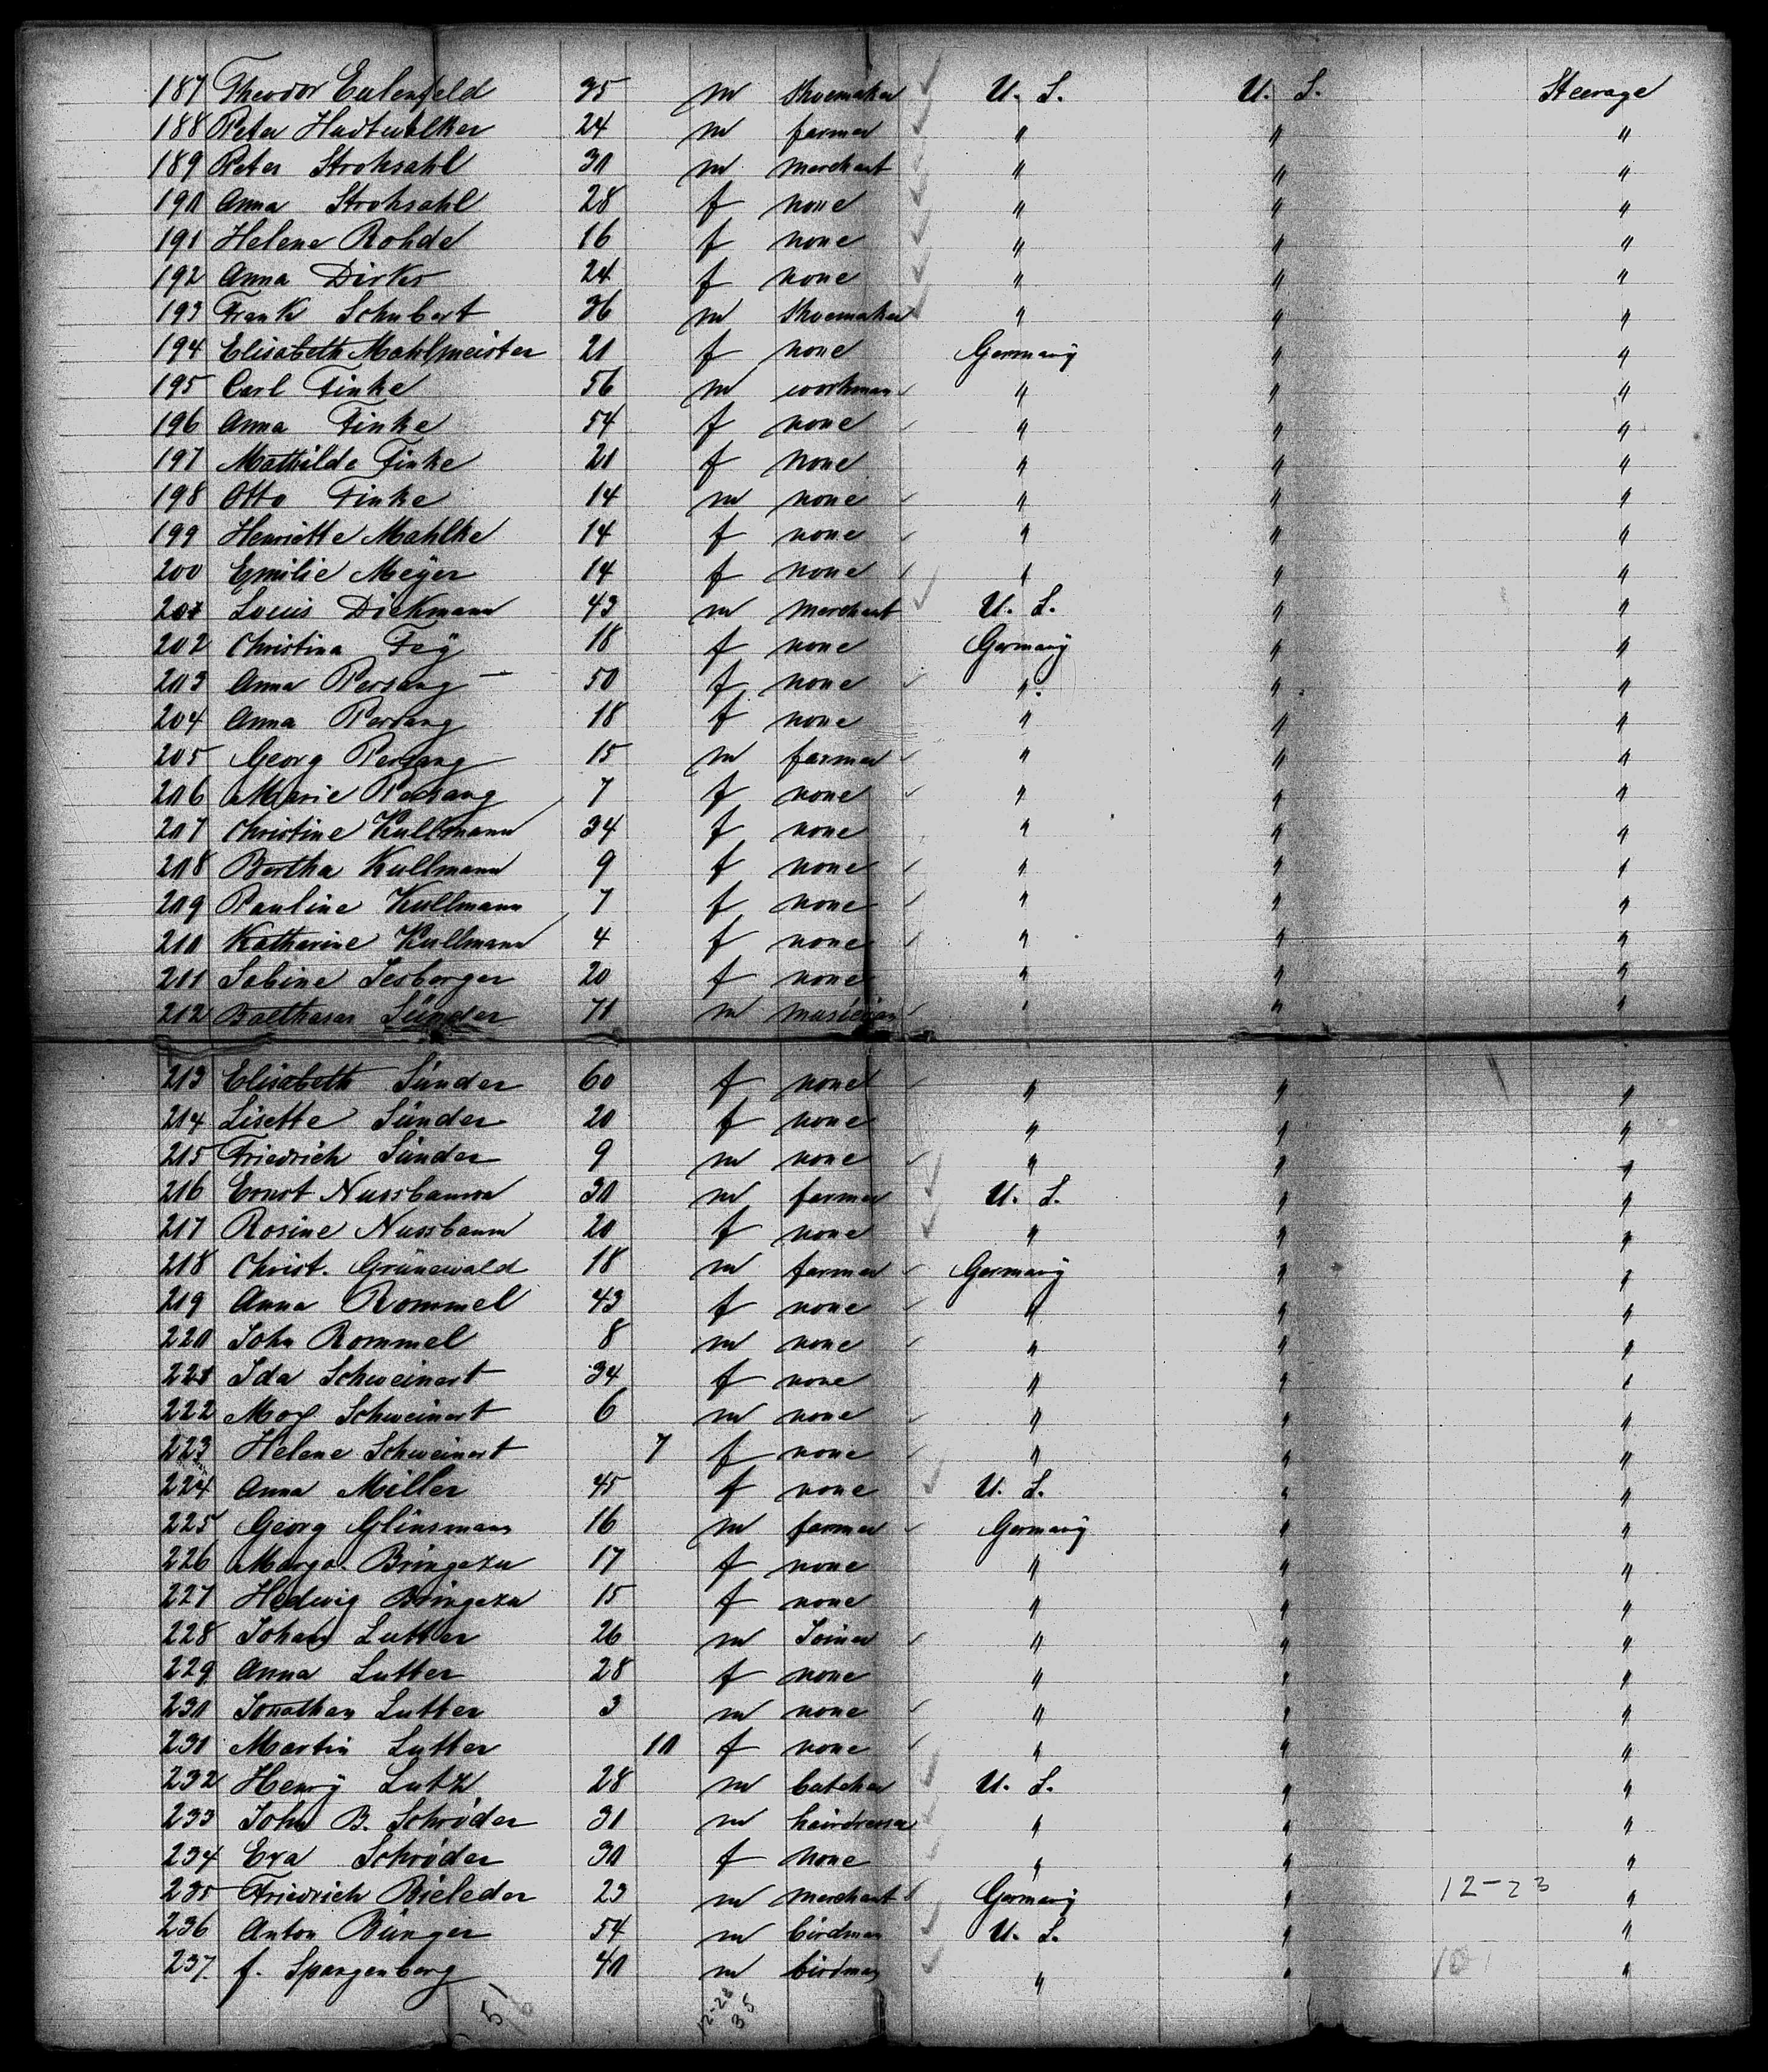 187 Theodor Eulenfeld 35 m Shoemaker U. S. U. S. Steerage
188 Peter Hadtwalker 24 m farmer " " "
189 Peter Strohsahl 30 m merchant " " "
190 Anna Strohsahl 28 f none " " "
191 Helene Rohde 16 f none " " "
192 Anna Dirks 24 f none " " "
193 Frank Schubert 36 m Shoemaker " " "
194 Elisabeth Mahlmeister 20 f none Germany " "
195 Carl Finke 56 m workman " " "
196 Anna Finke 54 f none " " "
197 Mathilde Finke 20 f none " " "
198 Otto Finke 14 m none " " "
199 Henriette Mahlke 14 f none " " "
200 Emilie Meÿer 14 f none " " "
201 Louis Diekmann 43 m merchant U. S. " "
202 Christina Feÿ 18 f none Germany " "
203 Anna Persang 50 f none " " "
204 Anna Persang 18 f none " " "
205 Georg Persang 15 m farmer " " "
206 Marie Persang 7 f none " " "
207 Christine Kullmann 34 f none " " "
208 Bertha Kullmann 9 f none " " "
209 Pauline Kullmann 7 f none " " "
210 Katharine Kullmann 4 f none " " "
211 Sabine Sesberger 20 f none " " "
212 Balthasar Sünder 70 m musician " " "
213 Elisabeth Sünder 60 f none " " "
214 Lisette Sünder 20 f none " " "
215 Friedrich Sünder 9 m none " " "
216 Ernst Nussbaum 30 m farmer U. S. " "
217 Rosine Nussbaum 20 f none " " "
218 Christ. Grünewald 18 m farmer Germany " "
219 Anna Rommel 43 f none " " "
220 John Rommel 8 m none " " "
221 Ida Schweinert 34 f none " " "
222 Max Schweinert 6 m none " " "
223 Helene Schweinert 7 f none " " "
224 Anna Miller 45 f none U. S. " "
225 Georg Glinsmann 16 m farmer Germany " "
226 Marga. Bringezu 17 f none " " "
227 Hedwig Bringezu 15 f none " " "
228 Johan Lutter 26 m Joiner " " "
229 Anna Lutter 28 f none " " "
230 Jonathan Lutter 3 m none " " "
231 Martin Lutter 10 f none " " "
232 Henrÿ Lutz 28 m butcher U. S. " "
233 John B. Schröder 30 m hairdresser " " "
234 Eva Schröder 30 f none " " "
235 Friedrich Bieleder 23 m merchant Germany " 12-23 "
236 Anton Bünger 54 m birdman U. S. " "
237. f. Spangenberg 40 m birdman " " "
5
12-28
35